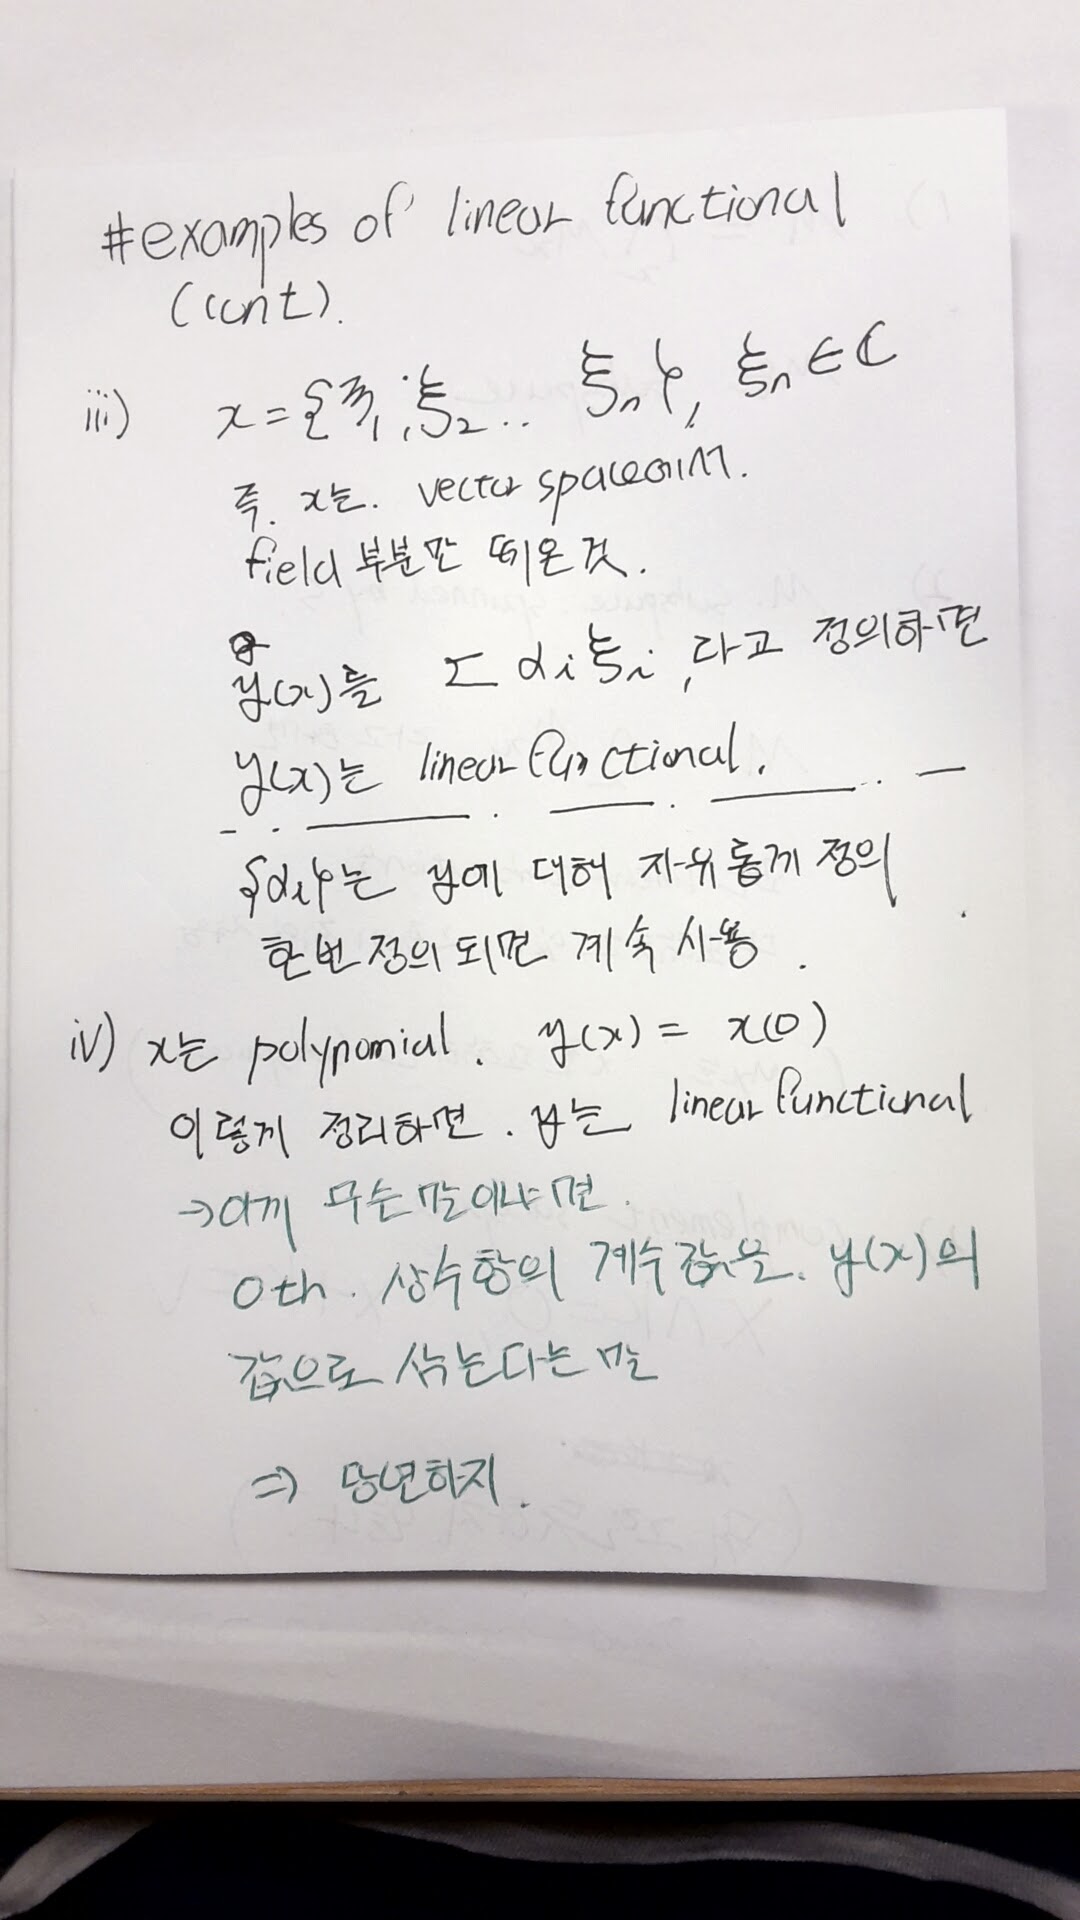 #examples of linear functional
(cont).
iii) x = {ξ₁, ξ₂ .. ξₙ}, ξₙ ∈ ℂ
즉. x는. vector space에서.
field 부분만 떼온 것.
y(x)를 Σ αᵢξᵢ, 라고 정의하면
y(x)는 linear functional.
{αᵢ}는 y에 대해 자유롭게 정의
한번 정의되면 계속 사용.
iv) x는 polynomial. y(x) = x(0)
이렇게 정리하면. y는 linear functional
→ 이게 무슨 말이냐면.
0th. 상수항의 계수값을. y(x)의
값으로 삼는다는 말
⇒ 당연하지.